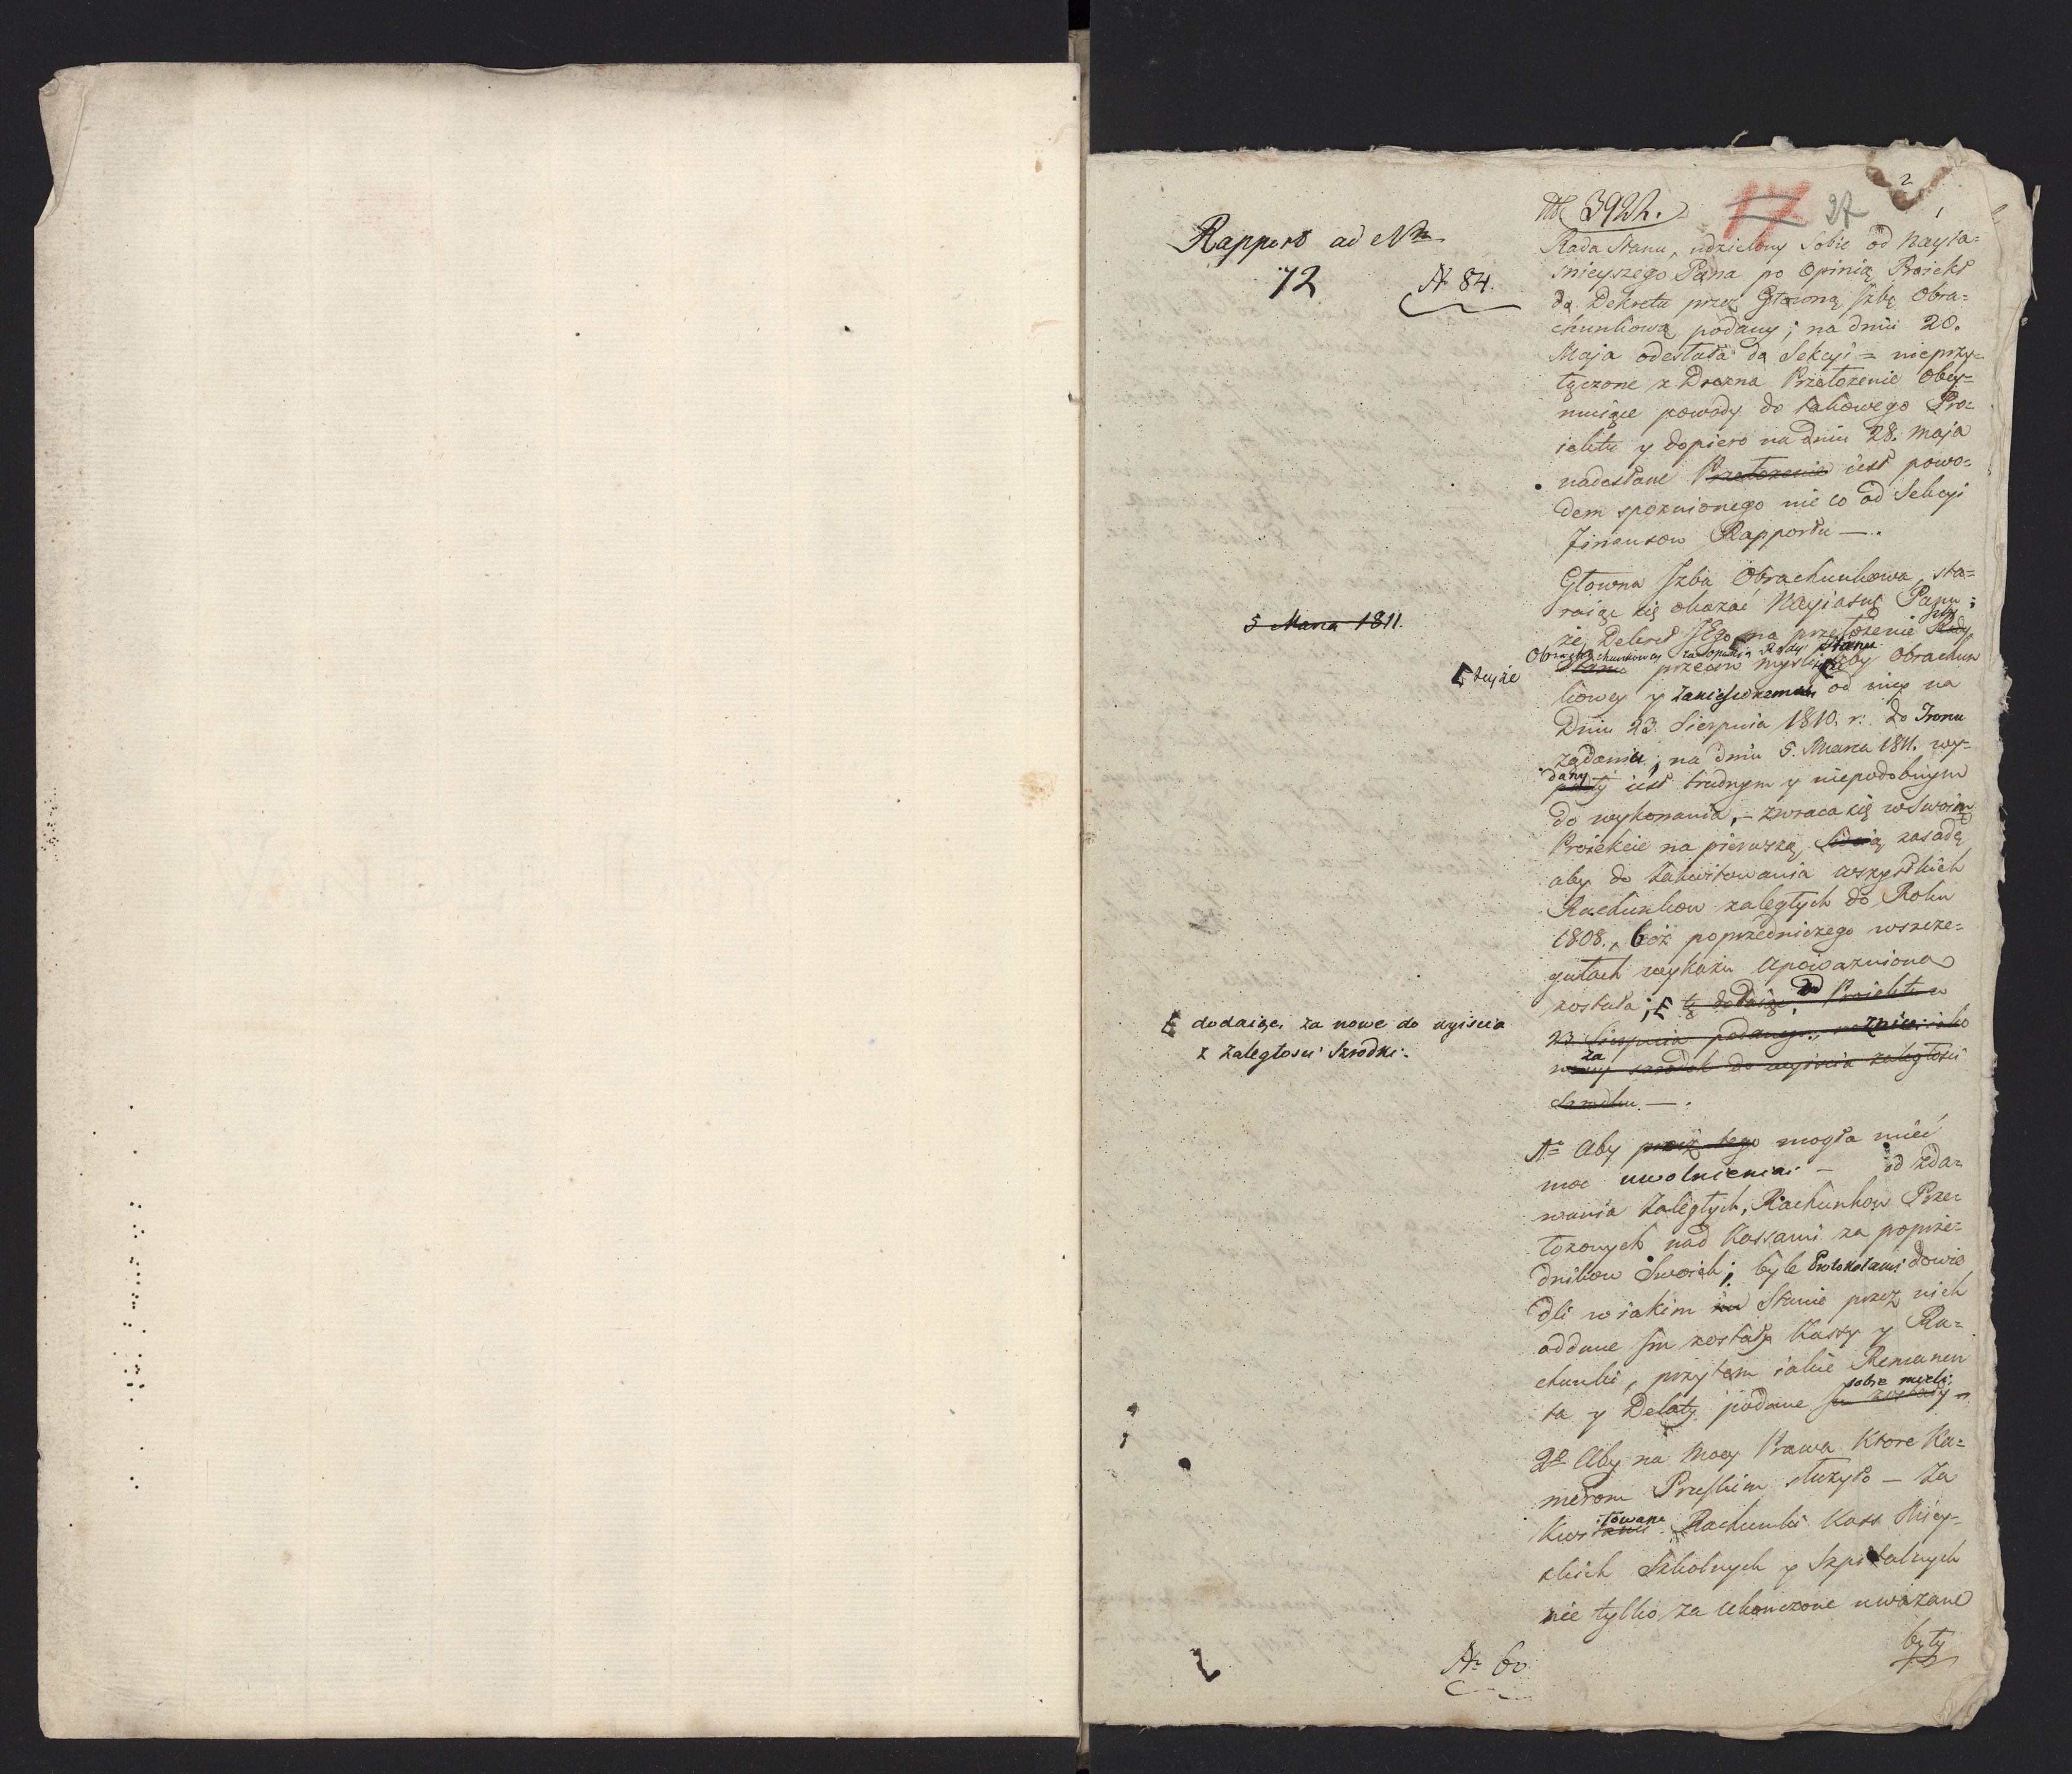 2
No 3922.
17 27
1
Rapport ad Nrm
72
N 84.
Rada Stanu, udzielony Sobie od Nayia=
snieyszego Pana po Opinią Proiekt
do Dekretu przez Głowną Jzbę Obra=
chunkową podany; na dniu 20.
Maja odesłała do Sekcyi = nieprzy=
łączone z Drezna Przełożenie Obey=
muiące powody do takowego Pro=
iektu y dopiero na dniu 28. Maja
nadesłane Przełożenie iest powo=
dem spoznionego nieco od Sekcyi
Finansow Rapportu —.
Głowna Jzba Obrachunkowa, sta=
raiąc się okazać Nayiasnę Panu;
5 Marca 1811.
że Dekret JEgo na przełożenie Rady Jzby
Obrachunkowey za opinią Rady Stanu
Stanu przeciw mysli Jzby Obrachun
teyże
kowey y zaniesionemu od niey na
Dniu 23. Sierpnia 1810. r. do Tronu
żądaniu, na dniu 5. Marca 1811. wy=
dany
iest trudnym y niepodobnym
do wykonania, – zwraca się w Swoim
Proiekcie na pierwszą zasadę,
aby do zakwitowania wszystkich
Rachunkow zaległych do Roku
1808., bez poprzedniczego wszcze=
gułach wykazu upoważniona
została;
dodaiąc za nowe do wyiscia
z zaległosci Szrodki.
23. Sierpnia podanego,
za
do wyiscia zaległosci
Szrodku —.
1o Aby mogła mieć
moc uwolnienia — od zda=
wania zaległych, Rachunkow Prze=
łożonych nad Kassami za poprze=
dnikow Swoich; byle Protokołami dowie
dli w iakim Stanie przez nich
oddane Jm zostały Kassy y Ra=
chunki, przytem iakie Remanen
ta y Defekty podane Jm zostały sobie mieli
2o Aby na Mocy Prawa Ktore Ka=
merom Pruskim służyło — Za
kwitowane Rachunki Kass Miey=
skich Szkolnych y Szpitalnych
nie tylko za ukonczone uważane
były
N 60